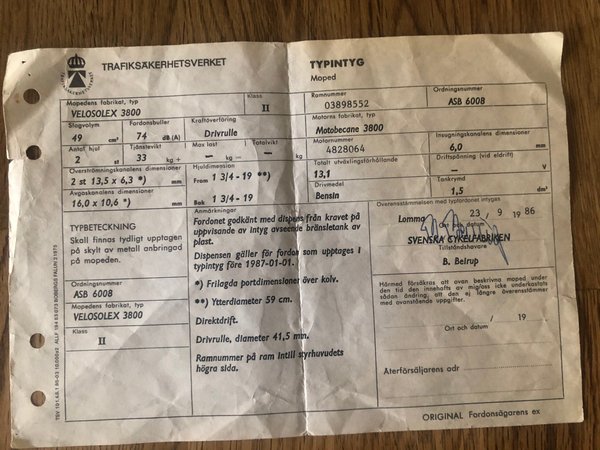 TRAFIKSÄKERHETSVERKET
TYPINTYG
Moped
Mopedens fabrikat, typ
VELOSOLEX 3800
Klass
II
Ramnummer
03898552
Ordningsnummer
ASB 6008
Slagvolym
49 cm³
Fordonsbuller
74 dB (A)
Kraftöverföring
Drivrulle
Motorns fabrikat, typ
Motobecane 3800
Insugningskanalens dimensioner
6,0 mm
Antal hjul
2 st
Tjänstevikt
33 kg +
Max last
– kg –
Totalvikt
– kg
Motornummer
4828064
Överströmningskanalens dimensioner
2 st 13,5 x 6,3 *) mm
Hjuldimension
Fram 1 3/4 - 19 **)
Totalt utväxlingsförhållande
13,1
Driftspänning (vid eldrift)
– V
Avgaskanalens dimensioner
16,0 x 10,6 *) mm
Bak 1 3/4 - 19
Drivmedel
Bensin
Tankrymd
1,5 dm³
TYPBETECKNING
Skall finnas tydligt upptagen
på skylt av metall anbringad
på mopeden.
Ordningsnummer
ASB 6008
Mopedens fabrikat, typ
VELOSOLEX 3800
Klass
II
Anmärkningar
Fordonet godkänt med dispens från kravet på
uppvisande av intyg avseende bränsletank av
plast.
Dispensen gäller för fordon som upptages i
typintyg före 1987-01-01.
*) Frilagda portdimensioner över kolv.
**) Ytterdiameter 59 cm.
Direktdrift.
Drivrulle, diameter 41,5 mm.
Ramnummer på ram intill styrhuvudets
högra sida.
Överensstämmelse med typfordonet intygas
Lomma 23 / 9 1986
Ort och datum
SVENSKA CYKELFABRIKEN
Tillståndshavare
B. Beirup
Härmed försäkras att ovan beskrivna moped under
den tid den innehafts av mig/oss icke underkastats
sådan ändring, att den ej längre överensstämmer
med ovanstående uppgifter.
/ 19
Ort och datum
Återförsäljarens adr
ORIGINAL Fordonsägarens ex